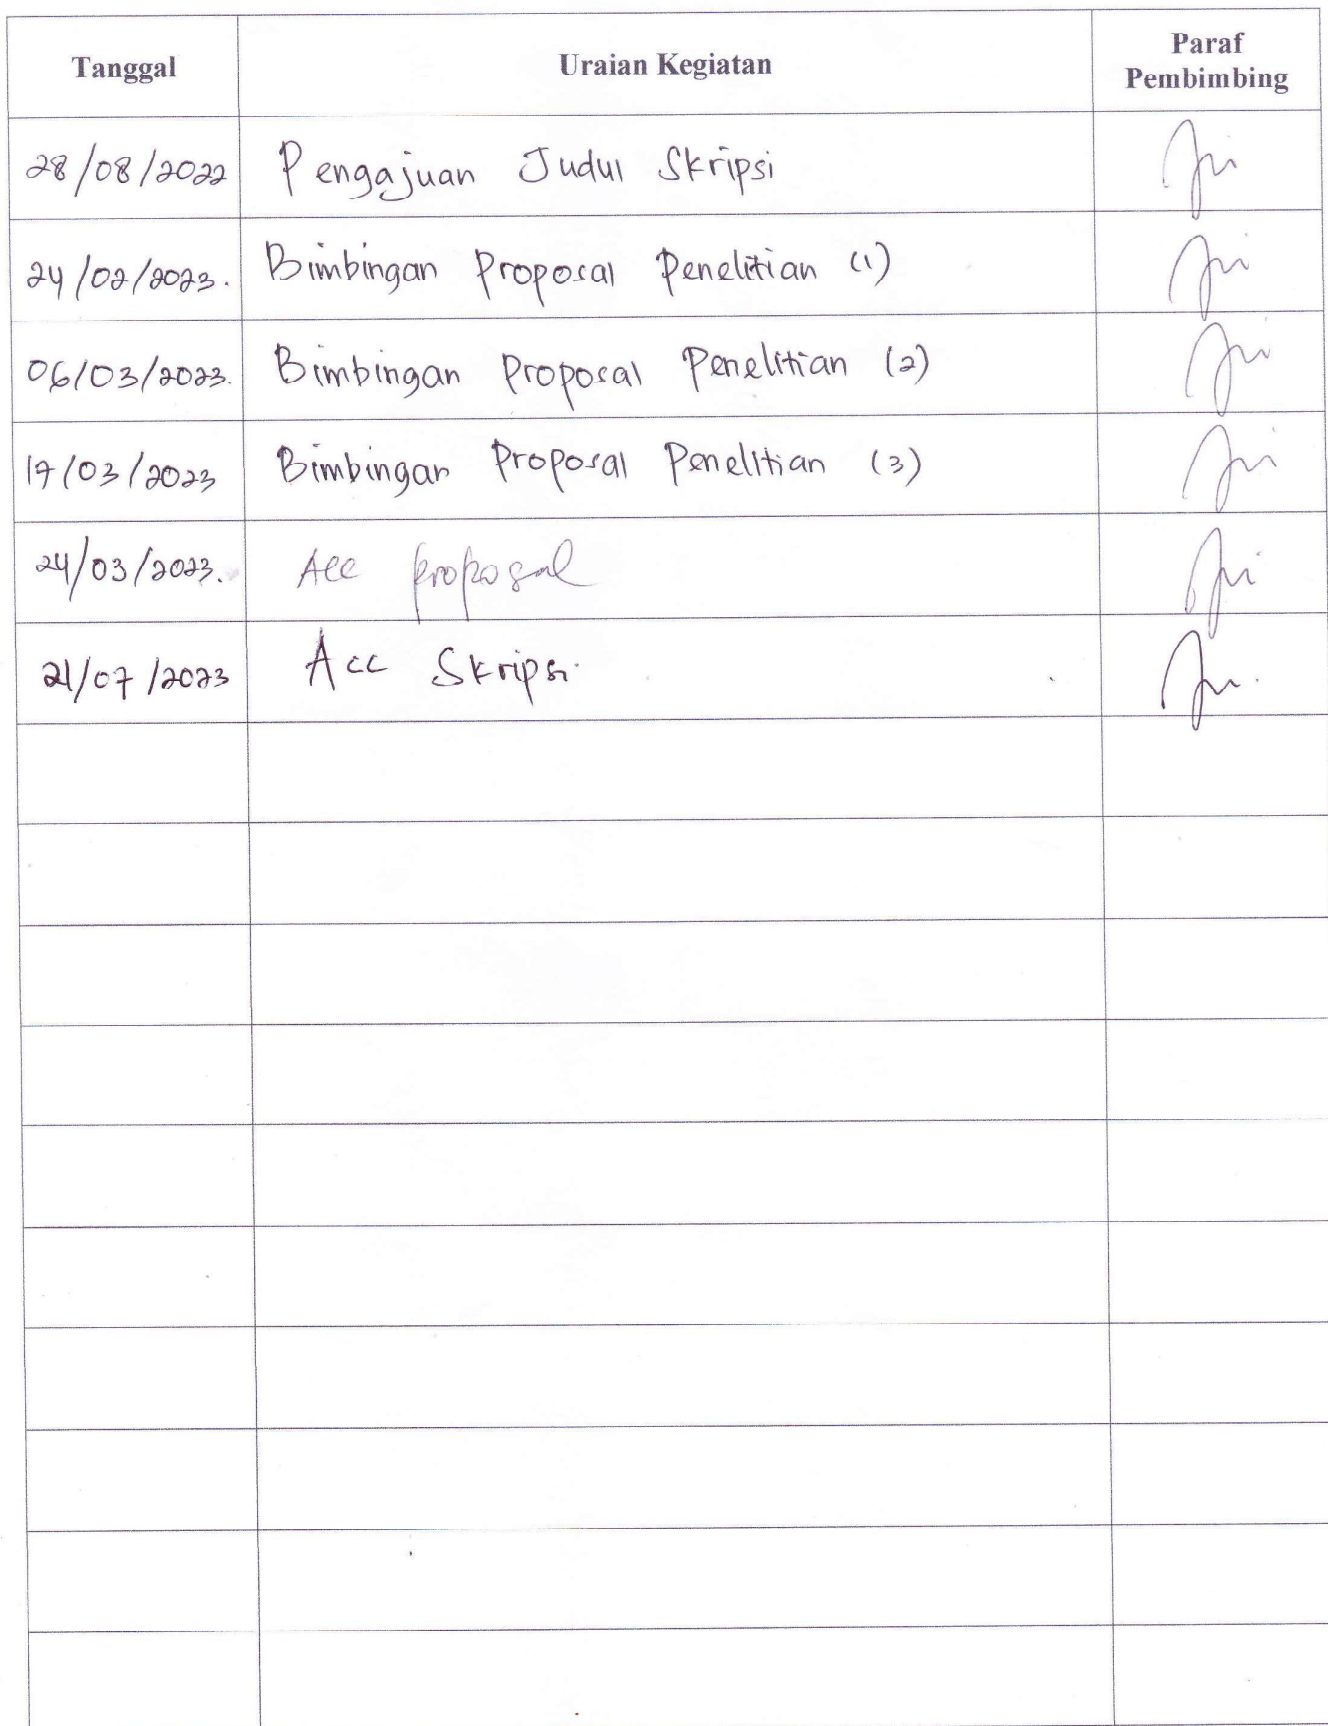 Tanggal Uraian Kegiatan Paraf
Pembimbing
28/08/2022 Pengajuan Judul Skripsi
24/02/2023. Bimbingan Proposal Penelitian (1)
06/03/2023. Bimbingan Proposal Penelitian (2)
17/03/2023 Bimbingan Proposal Penelitian (3)
24/03/2023. Acc proposal
21/07/2023 Acc Skripsi